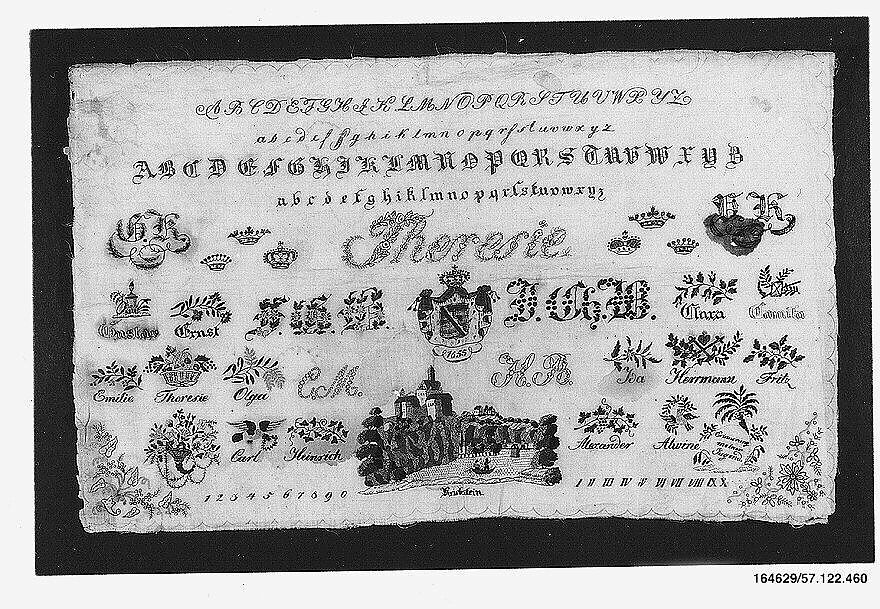 A B C D E F G H I K L M N O P Q R S T U V W X Y Z
a b c d e f g h i k l m n o p q r s s t u v w x y z
A B C D E F G H I J K L M N O P Q R S T U V W X Y Z
a b c d e f g h i k l m n o p q r ſ s t u v w x y z
Theresie.
J. G. B.
Gustav Ernst
Clara Camilla
1853
Emilie Theresie Olga
C. M.
H. B.
Ida Herrmann Fritz
Carl Heinrich
Alexander Alwine
Erinnerung meiner Jugend
1 2 3 4 5 6 7 8 9 0
I II III IV V VI VII VIII IX X
164629/57.122.460